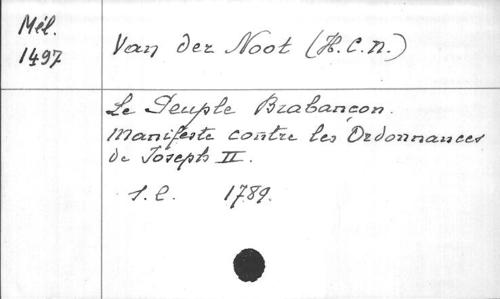 Mél.
1497
Van der Noot (H.C.N.)
Le Peuple Brabançon.
Manifeste contre les Ordonnances
de Joseph II.
s.l. 1789.